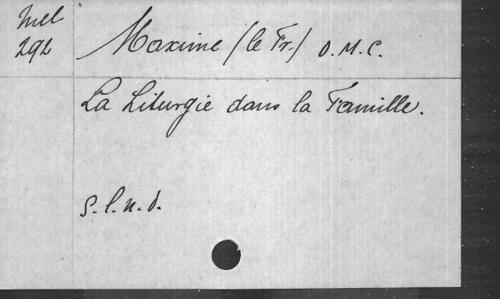 Mel
292
Maxime (le Fr.) O.M.C.
La Liturgie dans la Famille.
S.l.n.d.